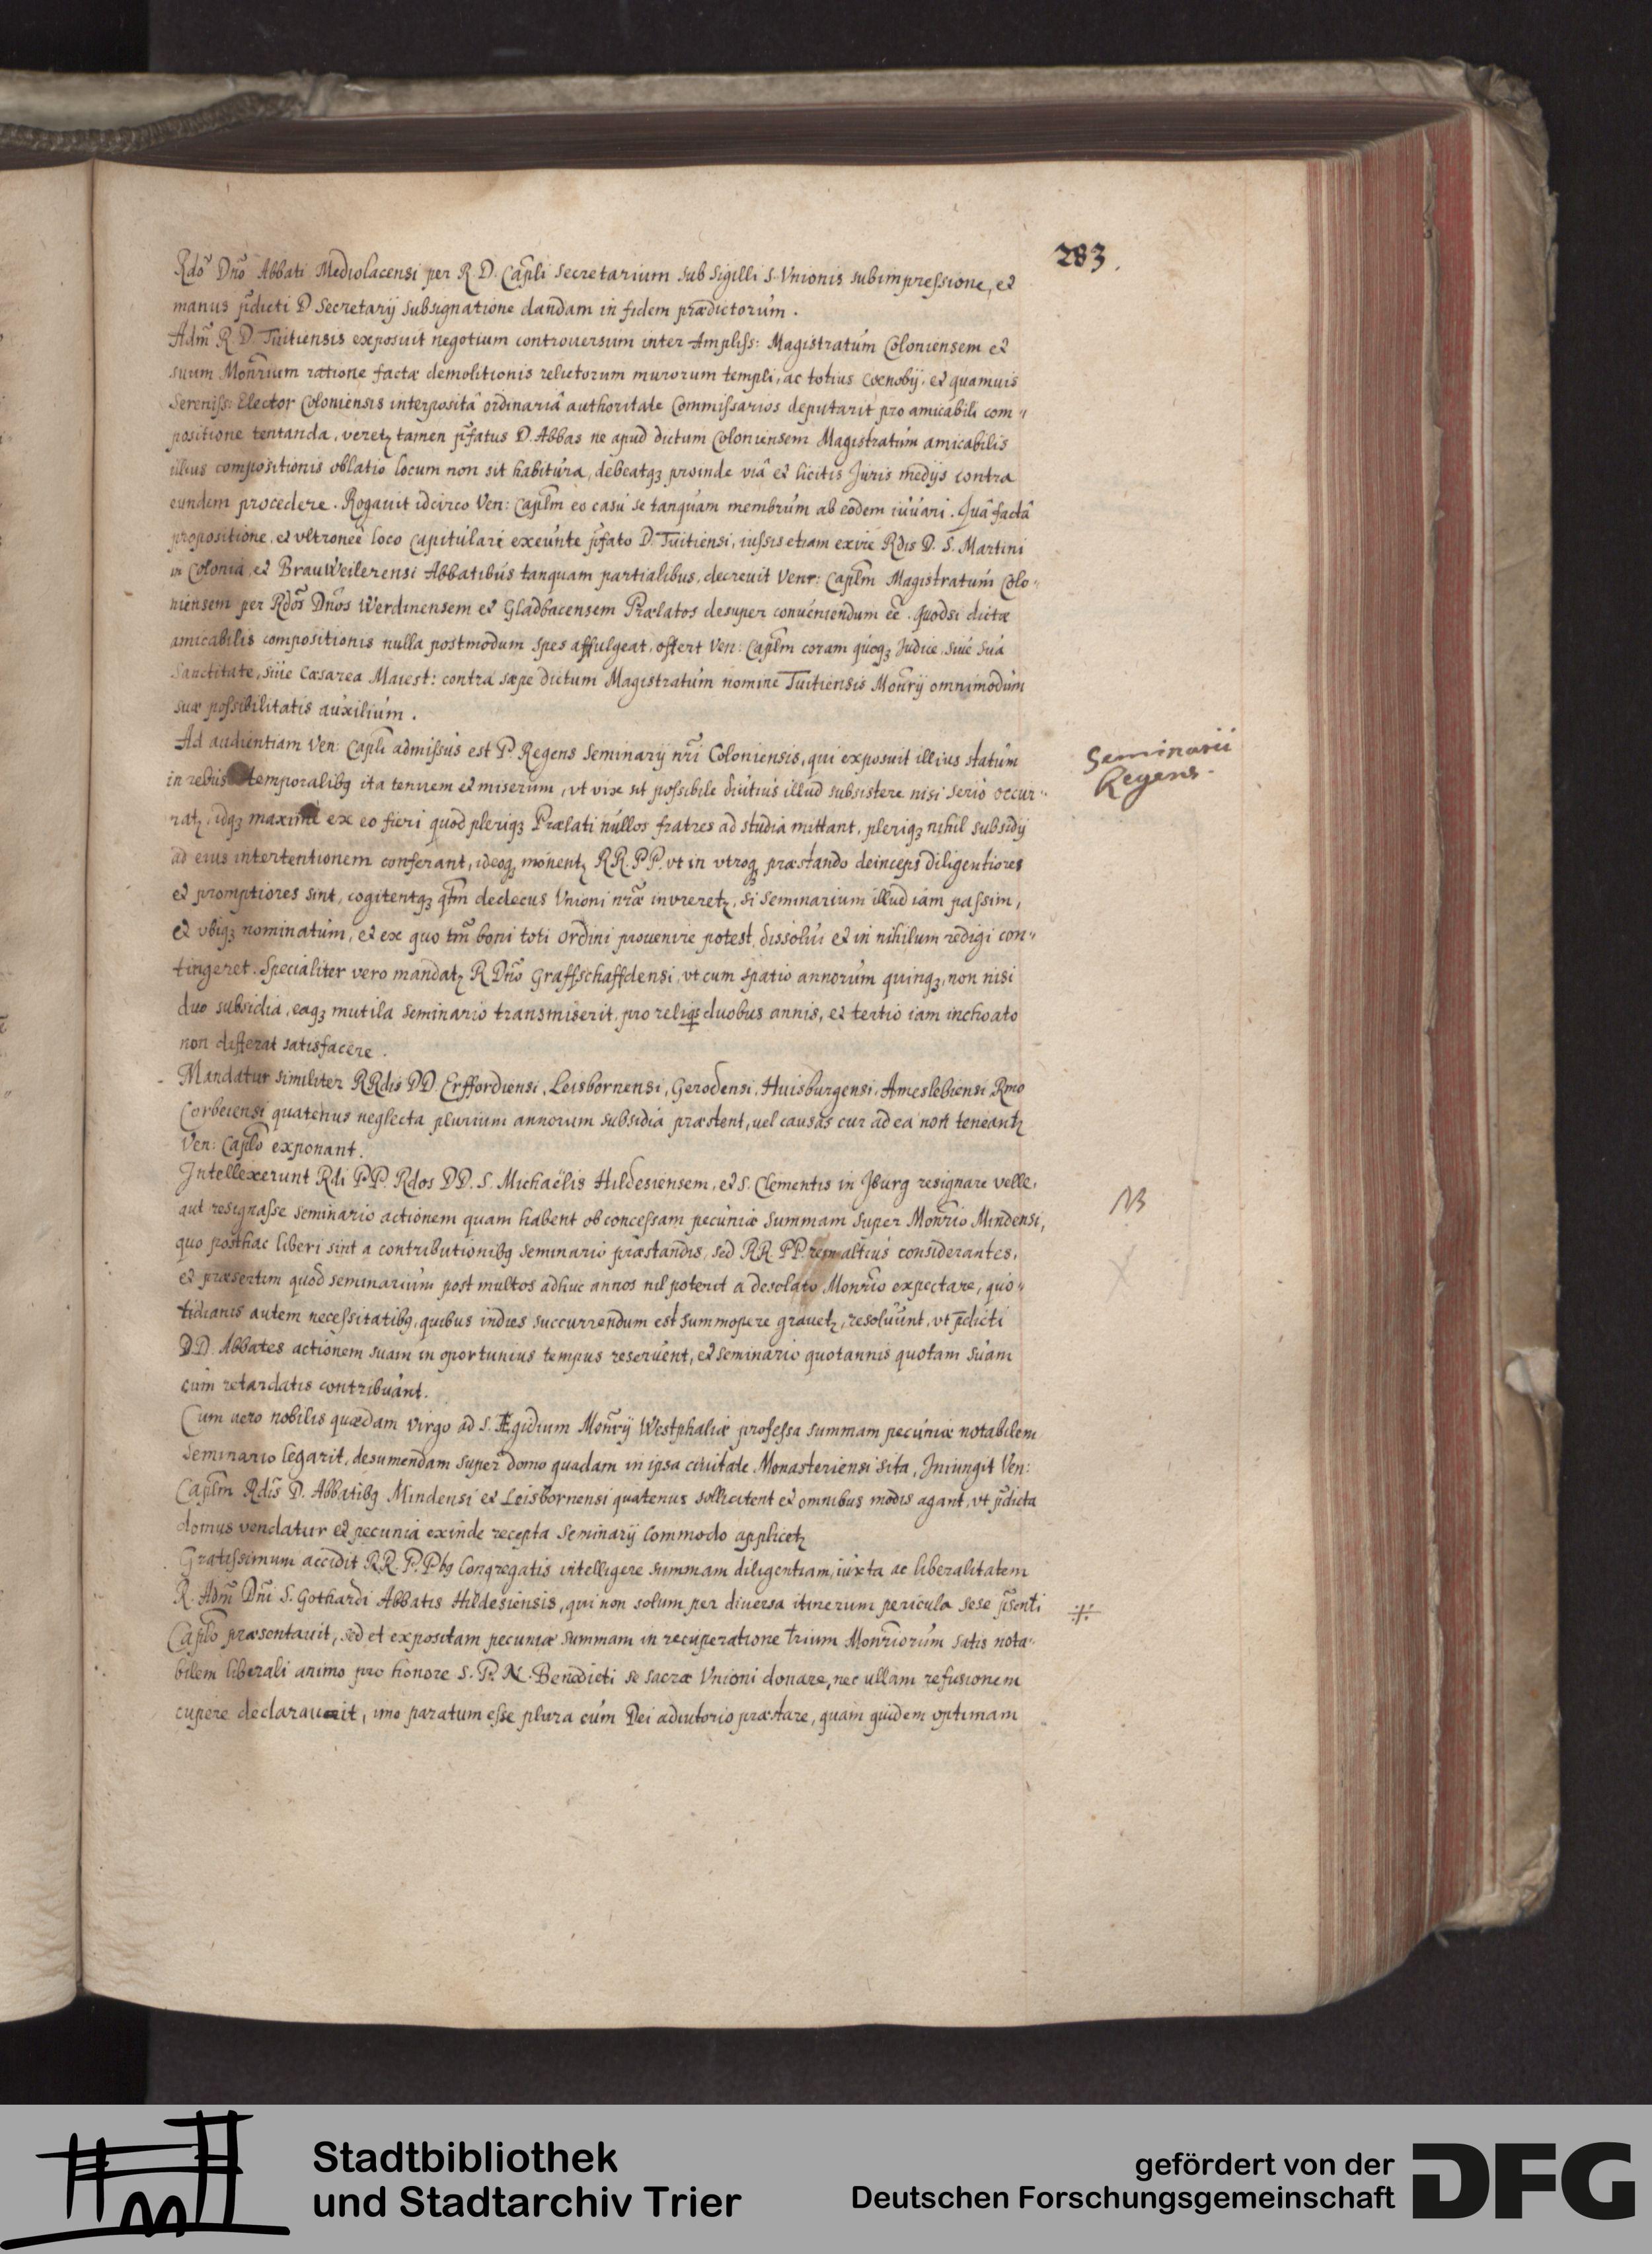 283.
Rdo Dno Abbati Mediolacensi per R. D. Capli Secretarium sub Sigilli S. Vnionis subimpressione, et
manus pdicti D Secretarij subsignatione dandam in fidem prædictorum.
Adm R. D. Tuitiensis exposuit negotium controuersum inter Ampliss: Magistratum Coloniensem et
suum Monrium ratione factæ demolitionis relictorum murorum templi, ac totius Coenobij. et quamuis
Sereniss: Elector Coloniensis interposita ordinaria authoritate Commissarios deputarit pro amicabili com"
positione tentanda, veretz tamen pfatus D. Abbas ne apud dictum Coloniensem Magistratum amicabilis
illius compositionis oblatio locum non sit habitura, debeatqz proinde viâ et licitis Juris medijs contra
eundem procedere. Rogauit idcirco Ven: Caplm eo casu se tanquam membrum ab eodem iuuari. Quâ factâ
propositione, et vltroneè loco capitulari exeunte pfato D. Tuitiensi, iussis etiam exire Rdis D. S. Martini
in Colonia, et BrauWeilerensi Abbatibus tanquam partialibus, decreuit Venr: Caplm Magistratum Colo"
niensem per Rdos Dnos Werdinensem et Gladbacensem Prælatos desuper conueniendum ee. Quodsi dictæ
amicabilis compositionis nulla postmodum spes affulgeat, offert Ven: Caplm coram quoqz Judice, siue suâ
Sanctitate, siue Cæsarea Maiest: contra sæpe dictum Magistratum nomine Tuitiensis Monrij omnimodum
suæ possibilitatis auxilium.
Ad audientiam Ven: Capli admissus est P. Regens Seminarij nri Coloniensis, qui exposuit illius statum
in rebus temporalibq ita tenuem et miserum, vt vix sit possibile diutius illud subsistere nisi serio occur"
ratz, idqz maxime ex eo fieri quod pleriqz Prælati nullos fratres ad studia mittant, pleriqz nihil subsidij
ad eius intertentionem conferant, ideoqz monentz RR. PP. vt in vtroqz præstando deinceps diligentiores
et promptiores sint, cogitentqz qtm dedecus Vnioni nræ inureretz, si Seminarium illud iam passim,
et vbiqz nominatum, et ex quo tm boni toti ordini prouenire potest, dissolui et in nihilum redigi con"
tingeret. Specialiter vero mandatz R Dno Graffschaffdensi, vt cum spatio annorum quinqz, non nisi
duo subsidia, eaqz mutila Seminario transmiserit, pro reliqs duobus annis, et tertio iam inchoato
non differat satisfacere.
Mandatur similiter RRdis DD. Erffordiensi, Leisbornensi, Gerodensi, Huisburgensi, Ameslebiensi Rmo
Corbeiensi quatenus neglecta plurium annorum subsidia præstent, uel causas cur ad ea non teneantz
Ven: Caplo exponant.
Intellexerunt Rdi PP. Rdos DD. S. Michaëlis Hildesiensem, et S. Clementis in Jburg resignare velle,
aut resignasse seminario actionem quam habent ob concessam pecuniæ summam super Monrio Mindensi,
quo posthac liberi sint a contributionibq Seminario præstandis, sed RR. PP. rem altius considerantes,
et præsertim quod seminarium post multos adhuc annos nil poterit a desolato Monrio expectare, quo"
tidianis autem necessitatibq, quibus indies succurrendum est summopere grauetz, resoluunt, vt pdicti
DD. Abbates actionem suam in oportunius tempus reseruent, et seminario quotannis quotam suam
cum retardatis contribuant.
Cum uero nobilis quædam virgo ad S. Ægidium Monrij Westphaliæ professa summam pecuniæ notabilem
Seminario legarit, desumendam super domo quadam in ipsa ciuitate Monasteriensi sita, Iniungit Ven:
Caplm Rdis D. Abbatibq Mindensi et Leisbornensi quatenus sollicitent et omnibus modis agant, vt pdicta
domus vendatur et pecunia exinde recepta Seminarij Commodo applicetz
Gratissimum accidit RR. P. Pbq Congregatis intelligere summam diligentiam, iuxta ac liberalitatem
R. Adm Dni S. Gothardi Abbatis Hildesiensis, qui non solum per diuersa itinerum pericula sese psenti
Caplo præsentauit, sed et expositam pecuniæ summam in recuperatione trium Monriorum satis nota"
bilem liberali animo pro honore S. P. N. Benedicti se sacræ Vnioni donare, nec ullam refusionem
cupere declarauit, imo paratum esse plura cum Dei adiutorio præstare, quam quidem optimam
Seminarii
Regens.
NB
Stadtbibliothek
und Stadtarchiv Trier
gefördert von der
Deutschen Forschungsgemeinschaft
DFG